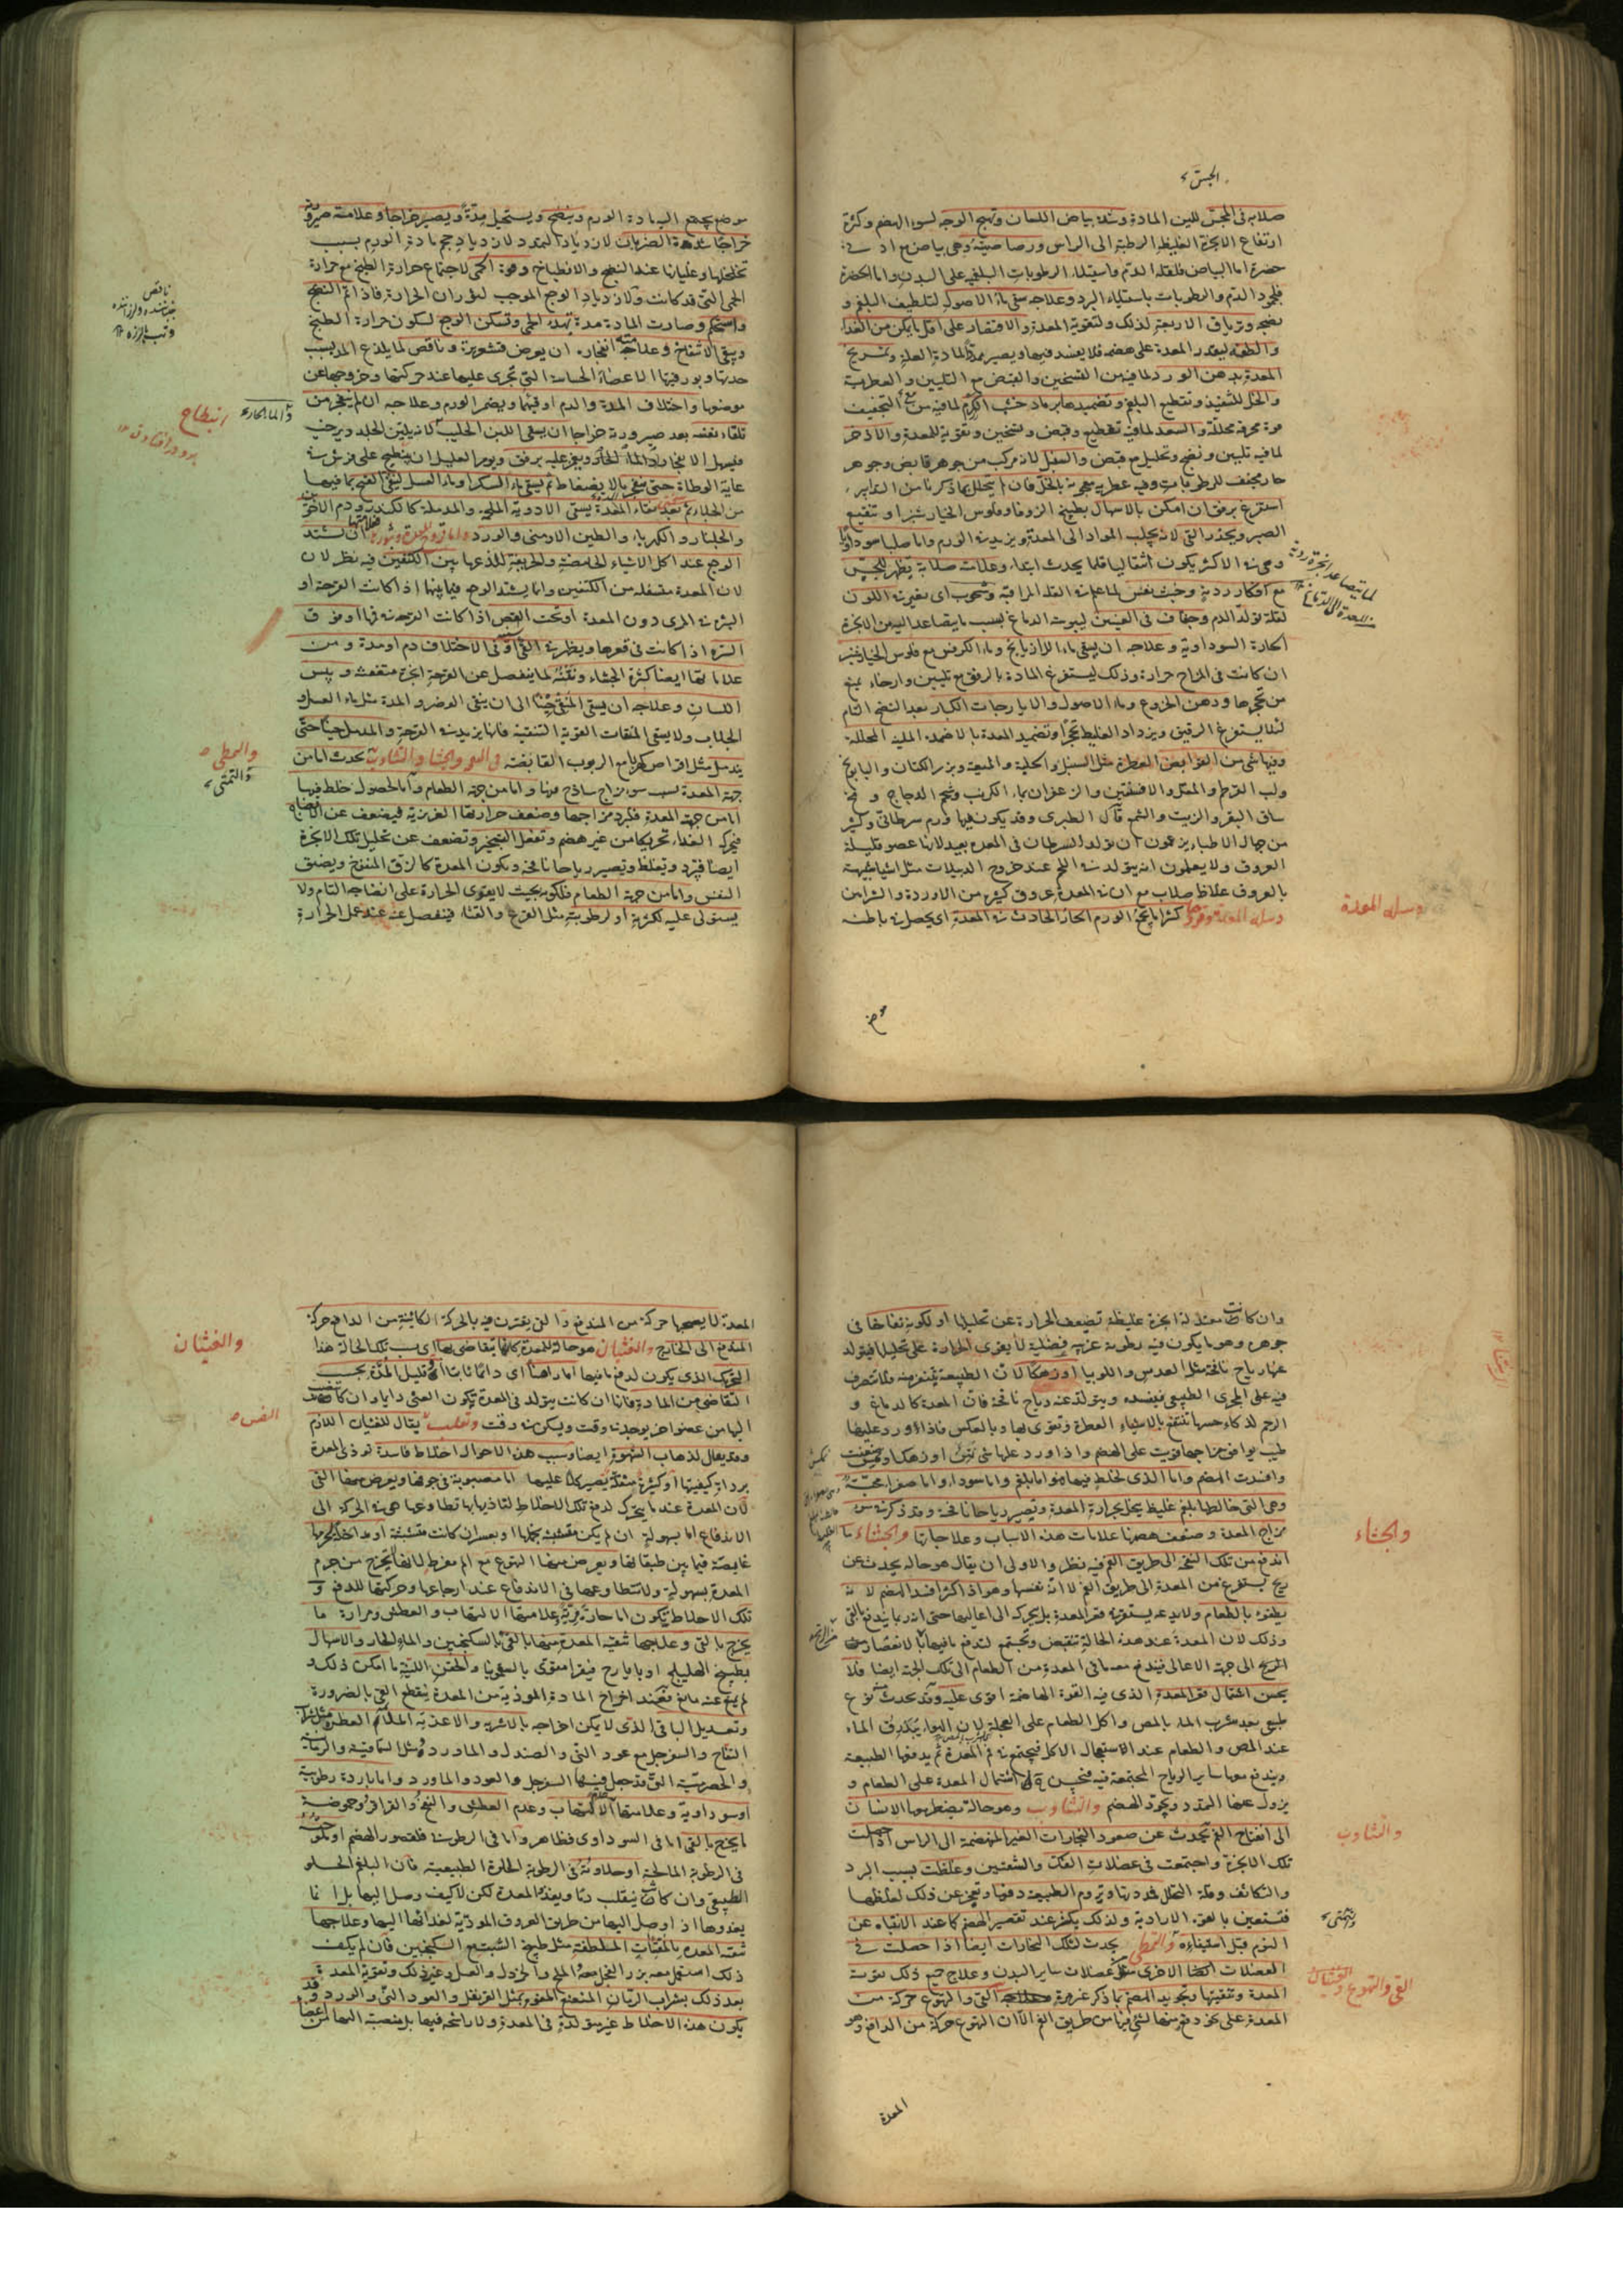 الجس
صلابه فى المجس للين المادة وشدة بياض اللسان وتهيج الوجه لسوء الهضم وكثرة
ارتفاع الابخرة الغليظة الرطبة الى الراس ورصاصيته وهى بياض مع ادنى
خضرة اما البياض فلقلة الدم واستيلاء الرطوبات البلغمية على البدن واما الخضرة
فلجمود الدم والرطوبات باستيلاء البرد وعلاجه سقى ماء الاصول لتلطيف البلغم و
نضجه وترياق الاربعة لذلك ولتقوية المعدة والاقتصار على اقل ما يمكن من الغذاء
والطفه ليقدر المعدة على هضمه فلا يفسد فيها ويصير مددا لمادة العلة وتمريخ
المعدة بدهن الورد لما فيه من التسخين والقبض مع التليين والعطرية
والخل للتنفيذ وتقطيع البلغم وتضميدها برماد خشب الكرم لما فيه من التجفيف
قوة محرقة محللة والسعد لما فيه تقطيع وقبض وتسخين وتقوية للمعدة والاذخر
لما فيه تليين ونضج وتحليل مع قبض والسنبل لانه مركب من جوهر قابض وجوهر
حار مجفف للرطوبات وفيه عطرية معجونة بالخل فان لم يتحلل بما ذكرنا من التدابير
استفرغ برفق ان امكن بالاسهال بطبيخ الزوفا وفلوس الخيار شنبر او بنقيع
الصبر ويحذر القى لانه يجلب المواد الى المعدة ويزيد فى الورم واما صلبا سوداويا
وهى فى الاكثر يكون انتقاليا قلما يحدث ابتداء وعلامته صلابة يظهر للمجس
مع افكار ردية وخبث نفس لما علم فى العلة المراقية وشحوب اى تغير فى اللون
لقلة تولد الدم وجفاف فى العينين ليبوسة الدماغ بسبب ما يتصاعد اليه من الابخرة
الحارة السوداوية وعلاجه ان يسقى ماء الرازيانج وماء الكرفس مع فلوس الخيار شنبر
ان كانت فى المزاج حرارة وذلك ليستفرغ المادة بالرفق مع تليين وارخاء يمنع
من تحجرها ودهن الخروع وماء الاصول والايارجات الكبار بعد النضج التام
لئلا يستفرغ الرقيق ويزداد الغليظ تحجرا وتضميد المعدة بالاضمدة الملينة المحللة
وفيها شى من القوابض العطرة مثل السنبل والحلبة والميعة وبزر الكتان والبابونج
ولب القرطم والمقل والافسنتين والزعفران بماء الكرنب وشحم الدجاج ومخ
ساق البقر والزيت والشمع قال الطبرى وقد يكون فيها ورم سرطانى وكثير
من جهال الاطباء يزعمون ان تولد السرطان فى المعدة بعيد لانها عضو قليلة
العروق ولا يعلمون انه يتولد فى اللحم عند خروج الدبيلات مثل اشيا شبيهة
بالعروق غلاظ صلاب مع ان فى المعدة عروق كثيرة من الاوردة والشرايين
دبيلة المعدة وقروحها كثيرا ما يجمع الورم الحار الحادث فى المعدة اى يحصل فى باطنه
لما يتصاعد ابخرة ردية
من المعدة الى الدماغ
دبيلة المعدة
موضع
موضع يجمع اليه مادة الورم وينضج ويستحيل مدة ويصير خراجا وعلامة صيرورته
خراجا شدة الضربان لازدياد التمدد لازدياد حجم مادة الورم بسبب
تخلخلها وغليانها عند النضج والانطباخ وقوة الحمى لاجتماع حرارة الطبخ مع حرارة
الحمى التى قد كانت ولازدياد الوجع الموجب لثوران الحرارة فاذا تم النضج
واستحكم وصارت المادة مدة تهدا الحمى وتسكن الوجع لسكون حرارة الطبخ
ويبقى الانتفاخ وعلامة انفجاره ان يعرض قشعريرة ونافض لما يلذع المدة بسبب
حدتها وبورقيتها الاعضاء الحساسة التى تجرى عليها عند حركتها وخروجها عن
موضعها واختلاف المدة والدم او قيئهما ويضمر الورم وعلاجه ان لم ينفجر من
تلقاء نفسه بعد صيرورته خراجا ان يسقى اللبن الحليب لانه يلين الجلد ويرخيه
فيسهل الانفجار والماء الحار ويغمز عليه برفق ويومر العليل ان ينبطح على فرش فى
غاية الوطاءة حتى ينفجر بالانضغاط ثم يسقى ماء السكر او ماء العسل لينقى القيح بما فيهما
من الجلاء ثم بعد نقاء المعدة يسقى الادوية الملحمة والمدملة كالكندر ودم الاخوين
والجلنار والكهرباء والطين الارمنى والورد واما قروح المعدة وبثورها فعلامتها ان تشتد
الوجع عند اكل الاشياء الحامضة والحريفة للذعها بين الكتفين فيه نظر لان
لان المعدة متسفلة من الكتفين وانما يشتد الوجع فيما بينهما اذا كانت القرحة او
البثر فى المرى دون المعدة او تحت القص اذا كانت القرحة فى فمها او فوق
السرة اذا كانت فى قعرها ويظهر فى القى او فى الاختلاف دم او مدة ومن
علاماتها ايضا كثرة الجشاء ونتنه لما ينفصل عن القرحة ابخرة متعفنة ويبس
اللسان وعلاجه ان يسقى المنقى حينا الى ان ينقى الوضر والمدة مثل ماء العسل و
الجلاب ولا يسقى المنقيات القوية التنقية فانها يزيد فى القرحة والمدمل حينا حتى
يندمل مثل اقراص كهربا مع الربوب القابضة فى النفخ والجشا والتثاوب تحدث اما من
جهة المعدة بسبب سوء مزاج ساذج فيها واما من جهة الطعام واما لحصول خلط فيها
اما من جهة المعدة فلبرد مزاجها وضعف حرارتها الغريزية فيضعف عن الانضاج
فيحرك الغذاء تحريكا من غير هضم وتفعل التبخير وتضعف عن تحليل تلك الابخرة
ايضا فتبرد وتغلظ وتصير رياحا نافخة ويكون المعدة كالزق المنفخ ويضيق
النفس واما من جهة الطعام فلكونه بحيث لا يقوى الحرارة على انضاجه التام ولا
يستولى عليه لكثرته او لرطوبته مثل القرع والقثاء فينفصل عنه عند عمل الحرارة
نافض
والماء الحار
انبطاح
والتمطى
والتمطى
وان كانت معتدلة ابخرة غليظة تضعف الحرارة عن تحليلها او لكونه نفاخا فى
جوهره وهو ما يكون فيه رطوبة غريبة فضلية لا يقوى الحرارة على تحليلها فيتولد
عنها رياح نافخة مثل العدس واللوبيا او زهكا لان الطبيعة تتنفر منه فلا تتصرف
فيه على المجرى الطبيعى فيفسده ويتولد عنه رياح نافخة فان المعدة كالدماغ و
الرحم لذكاء حسها تنتفع بالاشياء العطرة وتقوى بها وبالعكس فاذا ورد عليها
طيب يوافق مزاجها قويت على الهضم واذا ورد عليها شى نتن او زهك ضعفت
وافسدت الهضم واما الذى لخلط فيها فهو اما بلغم واما سوداء واما صفراء محية
وهى التى خالطها بلغم غليظ ينحل بحرارة المعدة وتصير رياحا نافخة وقد ذكر فى سوء
مزاج المعدة وضعف هضمها علامات هذه الاسباب وعلاجاتها والجشاء ما
اندفع من تلك النفخة الى طريق الفم فيه نظر والاولى ان يقال هو حالة يحدث عن
ريح يستفرغ من المعدة الى طريق الفم لا انه نفسها وهو اذا كثر افسد الهضم لانه
يطفو بالطعام ولا يدعه يستقر فى قعر المعدة بل يحركه الى اعاليها حتى انه ربما يندفع بالقى
وذلك لان المعدة عند هذه الحالة تنقبض وتجتمع لتدفع ما فيها بالانعصار فمعها
الريح الى جهة الاعالى فيندفع معه ما فى المعدة من الطعام الى تلك الجهة ايضا فلا
يحسن اشتمال قعر المعدة الذى فيه القوة الهاضمة اقوى عليه وقد يحدث نوع
طبيعى بعد شرب الماء بالمص واكل الطعام على العجلة لان الهواء يتدرق الماء
عند المص والطعام عند الاستعجال الاكل فيجتمع فى فم المعدة ثم يدفعها الطبيعة
ويندفع معها ساير الرياح المجتمعة فيه فيحسن اشتمال المعدة على الطعام و
يزول عنها التمدد ويجود الهضم والتثاوب وهو حالة يضطر بها الانسان
الى انفتاح الفم تحدث عن صعود البخارات الغير المنهضمة الى الراس اذا حصلت
تلك الابخرة واجتمعت فى عضلات الفك والشفتين وغلظت بسبب البرد
والتكاثف وقلة التحلل فمددتها ويروم الطبيعة دفعها وتعجز عن ذلك لغلظها
فتستعين بالقوة الارادية ولذلك يكثر عند تقصير الهضم كما عند الانتباه عن
النوم قبل استيفاءه والتمطى يحدث لتلك البخارات ايضا اذا حصلت فى
العضلات الاخرى مثل عضلات ساير البدن وعلاج جميع ذلك تقوية
المعدة وتنقيتها وتجويد الهضم بما ذكر غير مرة القى والتهوع حركة من
المعدة على نحو دفع منها لشى فيها من طريق الفم الا ان التهوع حركة من الدافع وهو
والجشاء
والتثاوب
والتمطى
القى والتهوع والغثيان
المعدة
المعدة لا يصحبها حركة من المندفع والقى يقترن فيه بالحركة الكاينة من الدافع حركة
المندفع الى الخارج والغثيان هو حالة للمعدة كانها تتقاضى بها اى بسبب تلك الحالة هذا
التحرك الذى يكون لدفع ما فيها اما راهنا اى دايما ثابتا او قليل المدة بحسب
التقاضى من المادة فانها ان كانت يتولد فى المعدة يكون الغثى دايما وان كانت تنصب
اليها من عضو اخر يوجد فى وقت ويسكن فى وقت وتقلب النفس يقال للغثيان اللازم
وقد يقال لذهاب الشهوة ايضا وسبب هذه الاحوال اخلاط فاسدة توذى المعدة
برداءة كيفيتها او كثيرة مثقلة يصير كلا عليها اما مصبوبة فى جوفها ويعرض منها القى
لان المعدة عندما يتحرك لدفع تلك الاخلاط لتاذيها بها تطاوعها هى فى الحركة الى
الاندفاع اما بسهولة ان لم يكن متشبثة بجرمها او بعسر ان كانت متشبثة او مداخلة لجرمها
غايصة فيما بين طبقاتها ويعرض منها التهوع مع الم مفرط لانها لا يخرج من جرم
المعدة بسهولة ولا تتطاوعها فى الاندفاع عند ازعاجها وحركتها للدفع و
تلك الاخلاط تكون اما حارة مرية علامتها الالتهاب والعطش ومرارة ما
يخرج بالقى وعلاجها تنقية المعدة منها بالقى بالسكنجبين والماء الحار والاسهال
بطبيخ الهليلج او بايارج فيقرا مقوى بالسقمونيا والحقن اللينة ما امكن ذلك و
لم يمنع عنه مانع فعند اخراج المادة الموذية من المعدة ينقطع القى بالضرورة
وتعديل الباقى الذى لا يمكن اخراجه بالاشربة والاغذية الملايمة العطرة مثل شراب
التفاح والسفرجل مع عود النى والصندل والماورد ومثل السماقية والرمانية
والحصرمية التى قد جعل فيها السفرجل والعود والماورد واما باردة رطوبية
او سوداوية وعلامتها الالتهاب وعدم العطش والنفخ والقراقر وحموضة
ما يخرج بالقى اما فى السوداوى فظاهر واما فى الرطوبية فلقصور الهضم او ملوحته
فى الرطوبة المالحة او حلاوته فى الرطوبة الحلوة الطبيعية فان البلغم الحلو
الطبيعى وان كان ينقلب دما ويغذو المعدة لكن لا كيف وصل اليها بل انما
يغذوها اذا وصل اليها من طريق العروق المودية لغذائها اليها وعلاجها
تنقية المعدة بالمقيئات الملطفة مثل طبيخ الشبت مع السكنجبين فان لم يكف
ذلك استعمل معه بزر الفجل معه الملح والخردل والعسل وغير ذلك وتقوية المعدة
بعد ذلك بشراب الرمان المنعنع المفوه بمثل القرنفل والعود النى والورد وقد
يكون هذه الاخلاط غير متولدة فى المعدة ولا راسخة فيها بل منصبة اليها من اعضا
والغثيان
النفس